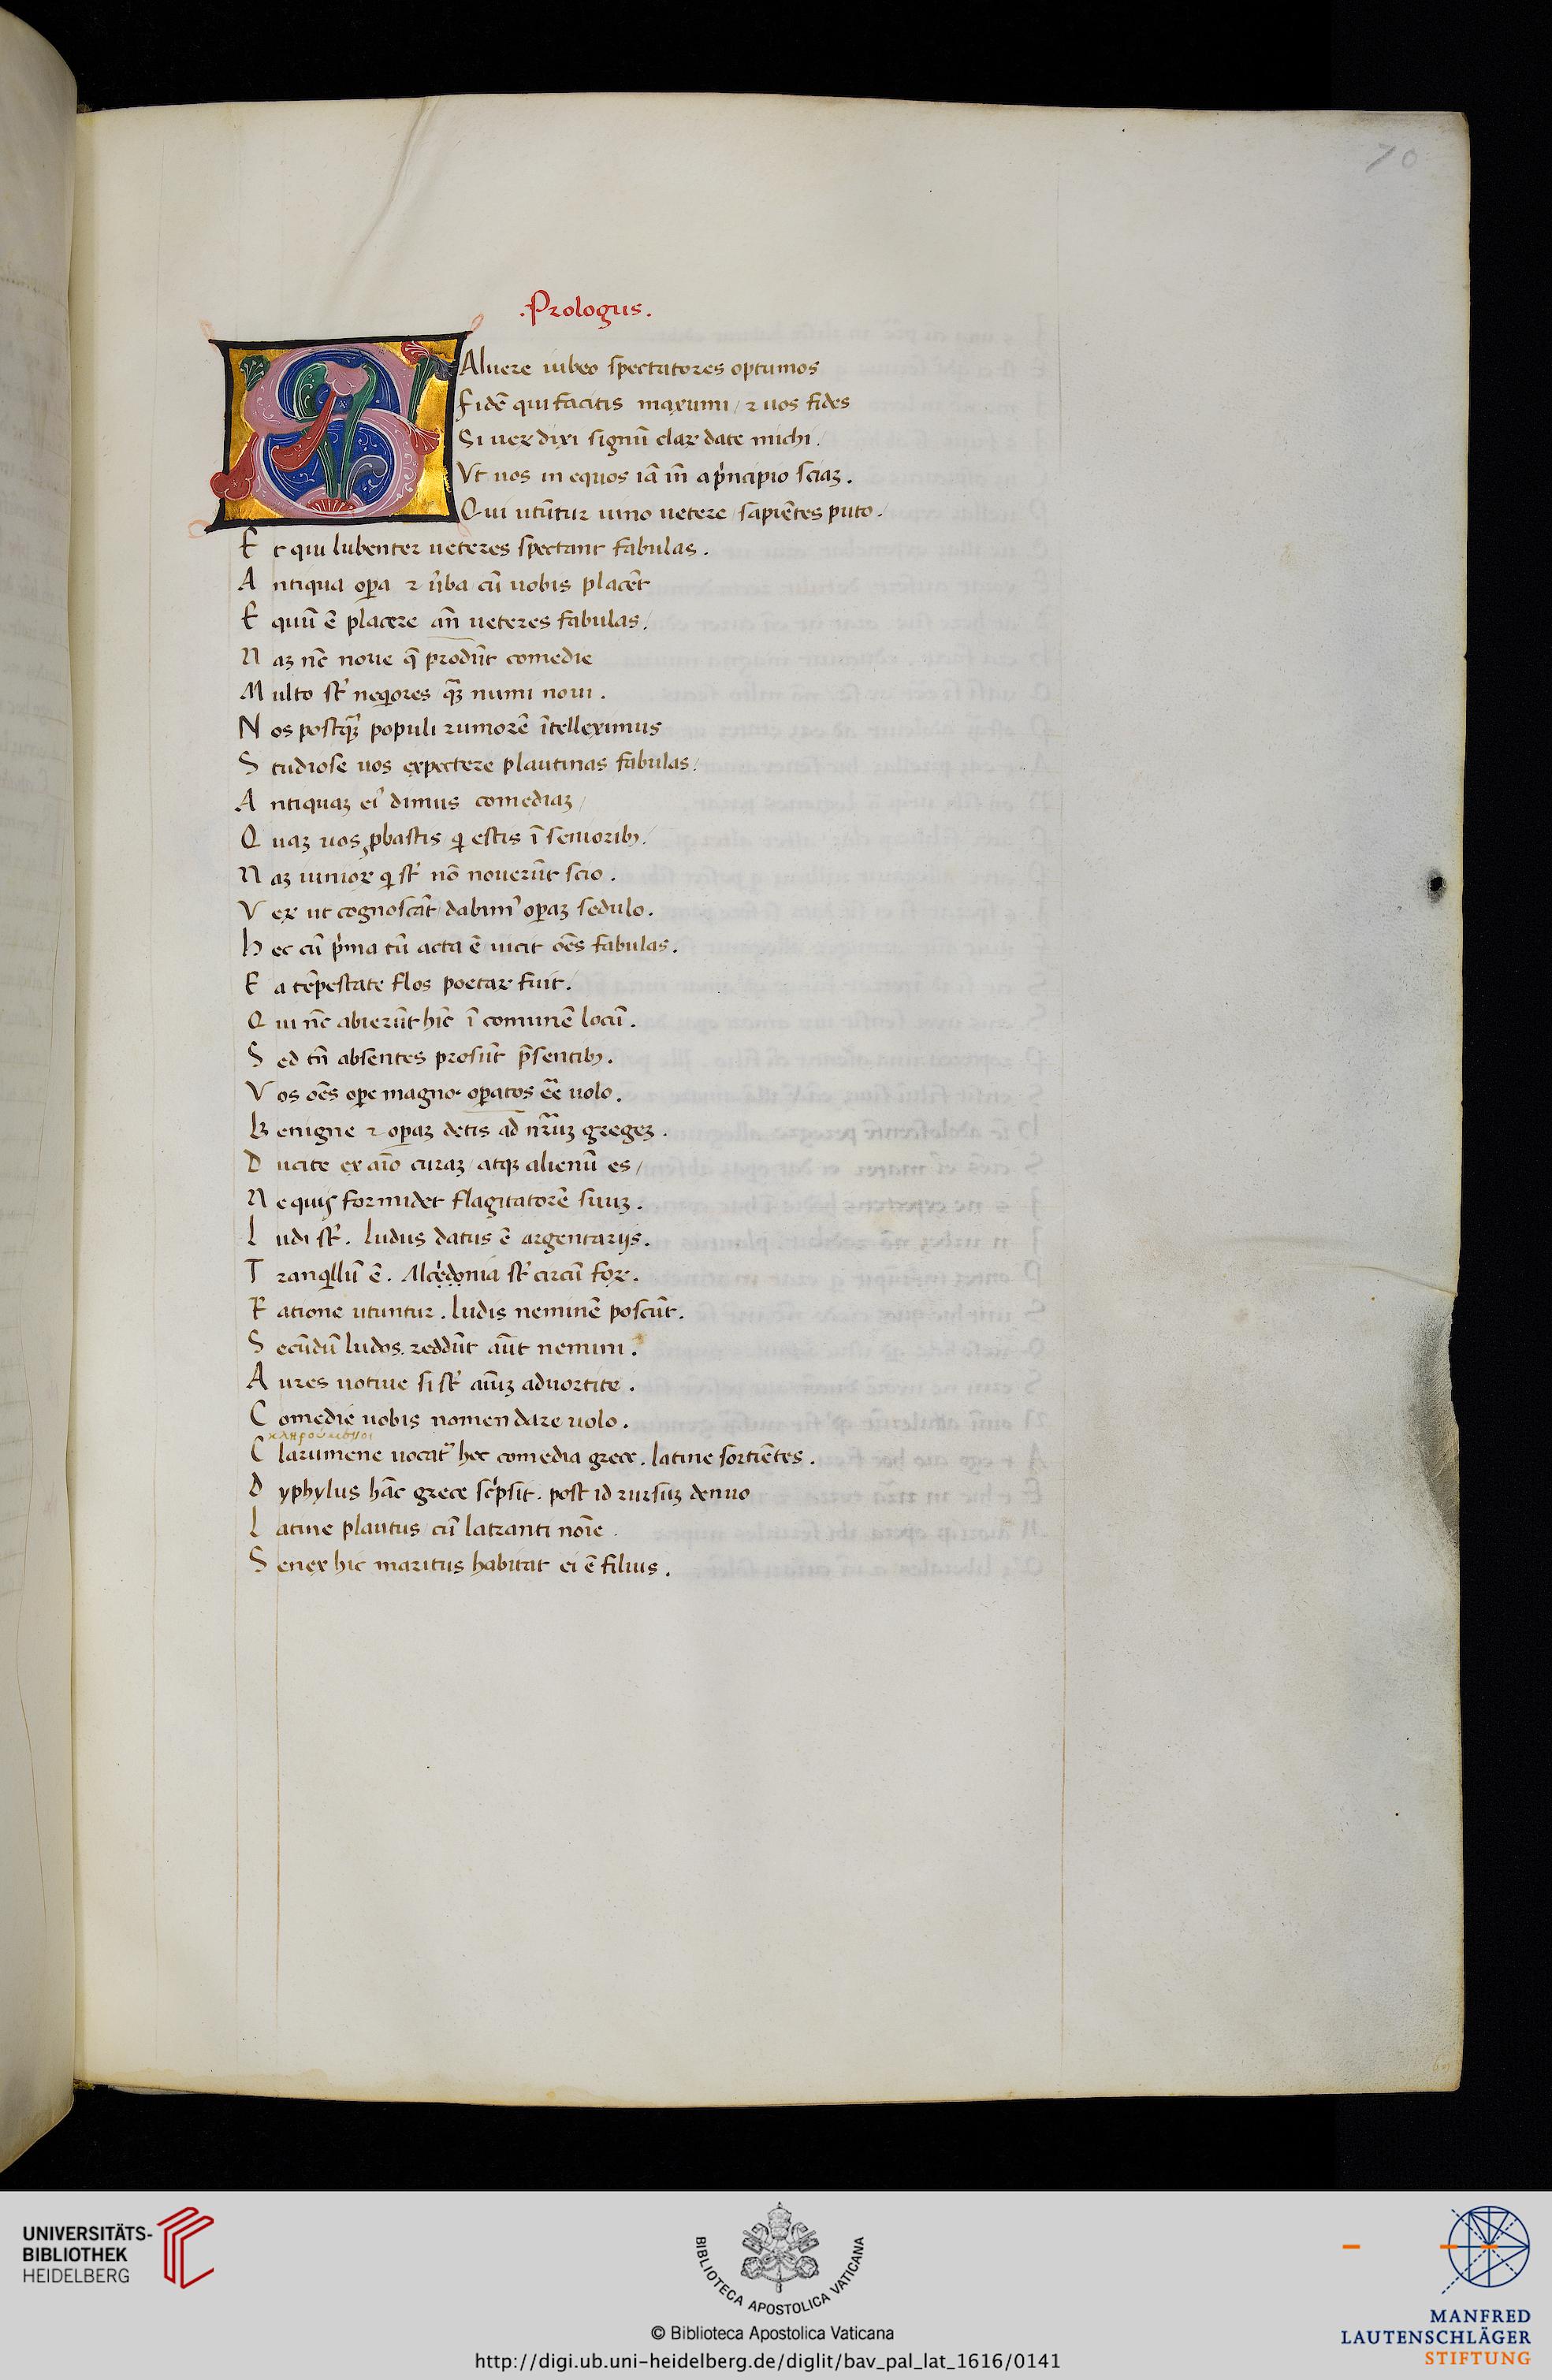 70
.Prologus.
SAluere iubeo spectatores optumos
Fidē qui facitis maxumi / ⁊ uos fides
Si uer dixi signū clar date michi.
Vt uos mequos iā īn a pncipio sciaꝫ.
Qui utūtur uino uetere sapiētes puto.
Et qui lubenter ueteres spectant fabulas.
Antiqua oꝑa ⁊ ūba cū uobis placēt
Equū ē placere an̄ ueteres fabulas /
Naꝫ nc̄ noue q̄ prodūt comedie
Multo st̄ neqores qꝫ numi noui.
Nos postqꝫ populi rumorē ītelleximus
Studiose uos expectere plautinas fabulas /
Antiquaꝫ ei' dimus comediaꝫ /
Quaꝫ uos ꝓbastis qi estis ī senioribꝫ /
Naꝫ iunior qi st̄ nō nouerūt scio.
Ver ut cognoscāt dabim' oꝑaꝫ sedulo.
Hec cū pma tū acta ē uicit oēs fabulas.
Ea tēpestate flos poetar fuit.
Qui nc̄ abierūt hīc ī comunē locū.
Sed tn̄ absentes prosūt p̄sentibꝫ.
Vos oēs oꝑe magno oꝑatos eē̄ uolo.
Benigne ⁊ oꝑaꝫ detis ad nr̄uꝫ gregeꝫ.
Ducite ex aīo curaꝫ / atqꝫ alienū es /
Nequis formidet flagitatorē suuꝫ.
Ludi st̄. ludus datus ē argentarijs.
Tranqllū ē. Alcedonia st̄ circū for.
Ratione utuntur. ludis neminē poscūt.
Secūdū ludos. reddūt aūt nemini.
Aures uotiue si st̄ aīuꝫ aduortite.
Comedie uobis nomen dare uolo.
κληρούμενοι
Clarumene uocat' hec comedia grece. latine sortiētes.
Dyphylus hāc grece sc̄psit. post id rursuꝫ denuo
Latine plautus cū latranti noīe.
Senex hic maritus habitat ei ē filius.
UNIVERSITÄTS-
BIBLIOTHEK
HEIDELBERG
BIBLIOTECA APOSTOLICA VATICANA
© Biblioteca Apostolica Vaticana
http://digi.ub.uni-heidelberg.de/diglit/bav_pal_lat_1616/0141
MANFRED
LAUTENSCHLÄGER
STIFTUNG